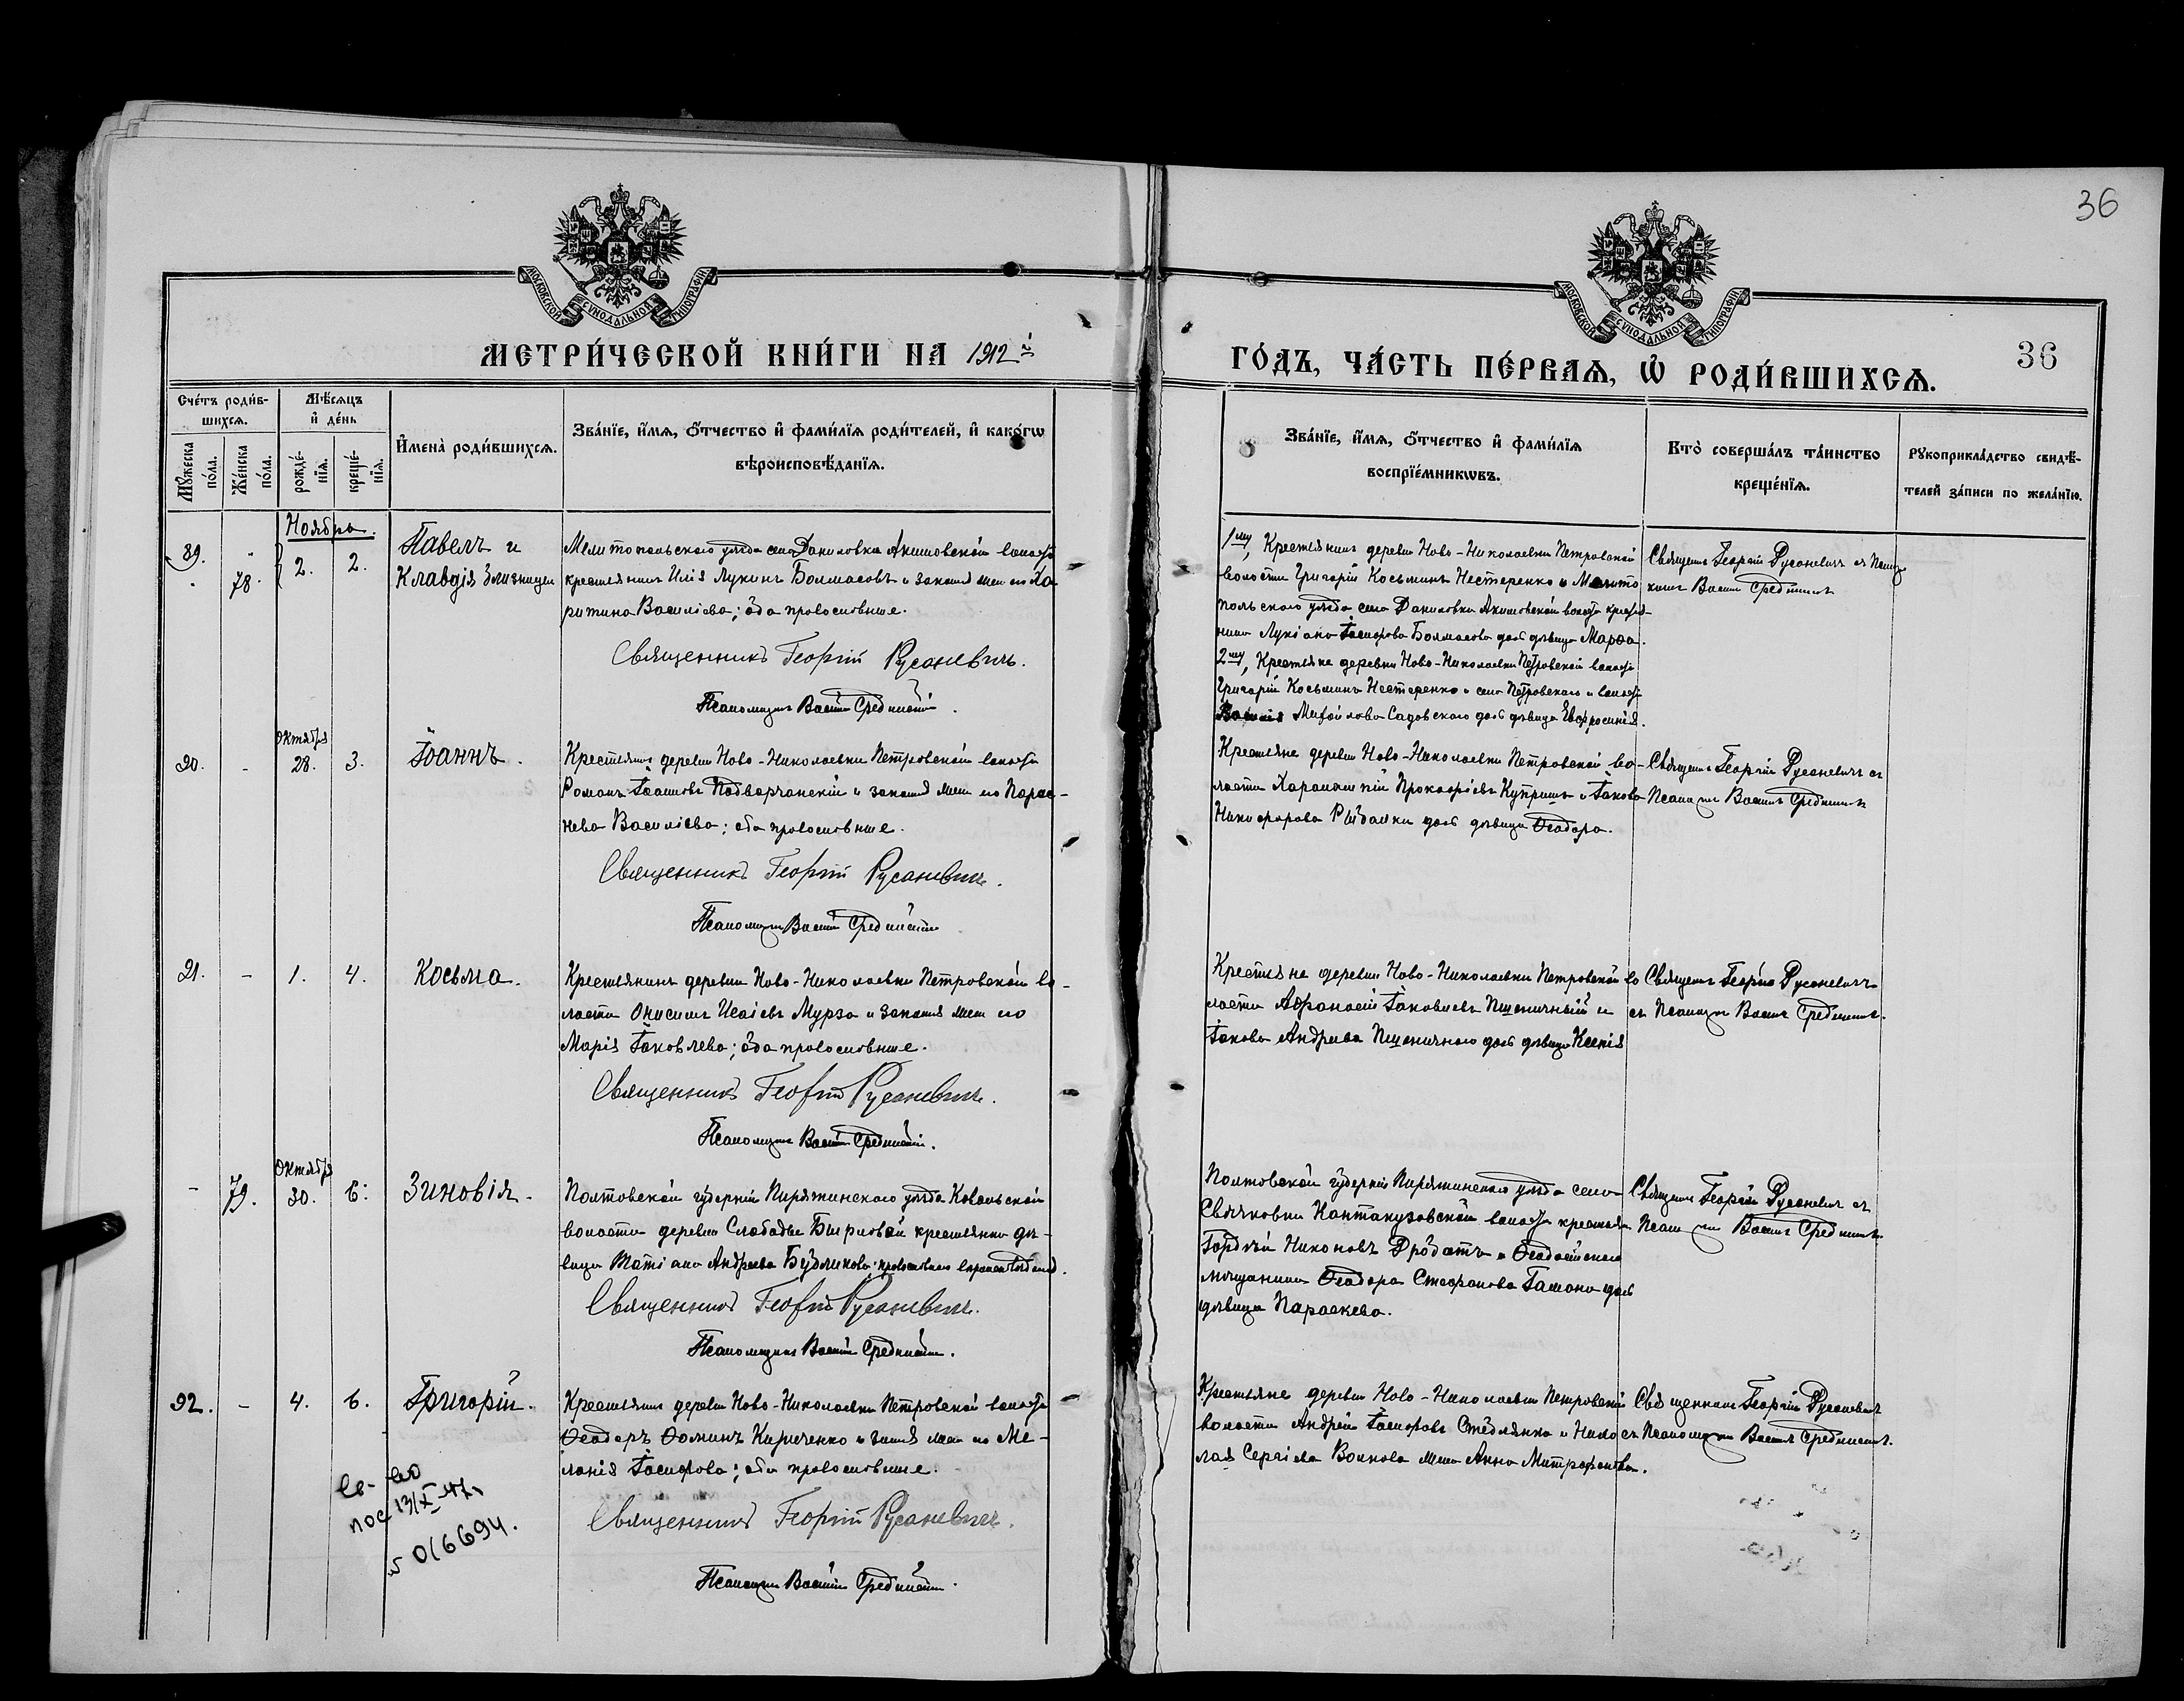 36
МОСКОВСКОЙ СѴНОДАЛЬНОЙ ТИПОГРАФІИ
МОСКОВСКОЙ СѴНОДАЛЬНОЙ ТИПОГРАФІИ
МЕТРИ́ЧЕСКОЙ КНИ́ГИ НА 1912 й
ГО́ДЪ, ЧА́СТЬ ПЕ́РВАѦ, Ѽ РОДИ́ВШИХСѦ.
36
Сче́тъ роди́в-
шихсѧ.
Мꙋ́жеска по́ла.
Же́нска по́ла.
Мѣ́сѧцъ
и҆ де́нь
рожде́-
нїѧ.
креще́-
нїѧ.
И҆мена̀ роди́вшихсѧ.
Зва́нїе, и҆́мѧ, ѻ҆́тчество и҆ фами́лїѧ роди́телей, и҆ како́гѡ
вѣроисповѣ́данїѧ.
Зва́нїе, и҆́мѧ, ѻ҆́тчество и҆ фами́лїѧ
воспрїе́мникѡвъ.
Кто̀ соверша́лъ та́инство
креще́нїѧ.
Рꙋкоприкла́дство свидѣ́-
телей за́писи по жела́нїю.
Ноября.
89. - 2. 2. Павелъ и
78. Клавдія близнецы
Мелитопольскаго уѣзда села Даниловки Акимовской волости
крестьянинъ Илія Лукинъ Болмасовъ и законная жена его Ха-
ритина Василіева; оба православные.
Священникъ Георгій Русаневичъ.
Псаломщикъ Василій
1му, Крестьянинъ деревни Ново-Николаевки Петровской
волости Григорій Косьминъ Нестеренко и Мелито
польскаго уѣзда села Даниловки Акимовской волости крестья-
нина Лукіана Іосифова Болмасова дочь дѣвица Марѳа.
2му, Крестьяне деревни Ново-Николаевки Петровской волости
Григорій Косьминъ Нестеренко и села Петровскаго и волости
Михайлова Садовскаго дочь дѣвица Евфросинія.
Священникъ Георгій Русаневичъ съ Псалом
щикомъ Василіемъ
Октября
90. - 28. 3. Іоаннъ.
Крестьянинъ деревни Ново-Николаевки Петровской волости
Романъ Іоанновъ Подворчанскій и законная жена его Парас-
кева Василіева; оба православные.
Священникъ Георгій Русаневичъ.
Псаломщикъ Василій
Крестьяне деревни Ново-Николаевки Петровской во-
лости Харалампій Прокофіевъ Купришъ и Іакова
Никифорова Рыбалки дочь дѣвица Ѳеодора.
Священникъ Георгій Русаневичъ съ
Псаломщикомъ Василіемъ
91. - 1. 4. Косьма.
Крестьянинъ деревни Ново-Николаевки Петровской во-
лости Онисимъ Исаіевъ Мурза и законная жена его
Марія Іаковлева; оба православные.
Священникъ Георгій Русаневичъ.
Псаломщикъ Василій
Крестьяне деревни Ново-Николаевки Петровской во
лости Аѳанасій Іаковлевъ Пшеничный и
Іакова Андреева Пшеничнаго дочь дѣвица Ксенія
Священникъ Георгій Русаневичъ
съ Псаломщикомъ Василіемъ
Октября
- 79. 30. 6. Зиновія.
Полтавской губерніи Пирятинскаго уѣзда Ковальской
волости деревни Слободы крестьянка дѣ-
вица Татіана Андреева православнаго вѣроисповѣданія.
Священникъ Георгій Русаневичъ.
Псаломщикъ Василій
Полтавской губерніи Пирятинскаго уѣзда села
Свѣчковки Кантакузовской волости крестьянинъ
Гордѣй Никоновъ и Ѳеодосійскаго
мѣщанина Ѳеодора Стефанова дочь
дѣвица Параскева.
Священникъ Георгій Русаневичъ съ
Псаломщикомъ Василіемъ
92. - 4. 6. Григорій.
Крестьянинъ деревни Ново-Николаевки Петровской волости
Ѳеодоръ Ѳоминъ Кириченко и законная жена его Ме-
ланія Іосифова; оба православные.
Священникъ Георгій Русаневичъ.
Псаломщикъ Василій
Крестьяне деревни Ново-Николаевки Петровской
волости Андрей Іосифовъ и Нико
лая Сергіева Воинова жена Анна Митрофанова.
Священникъ Георгій Русаневичъ
съ Псаломщикомъ Василіемъ
св-во
пос 13/X-47г
№ 016694.